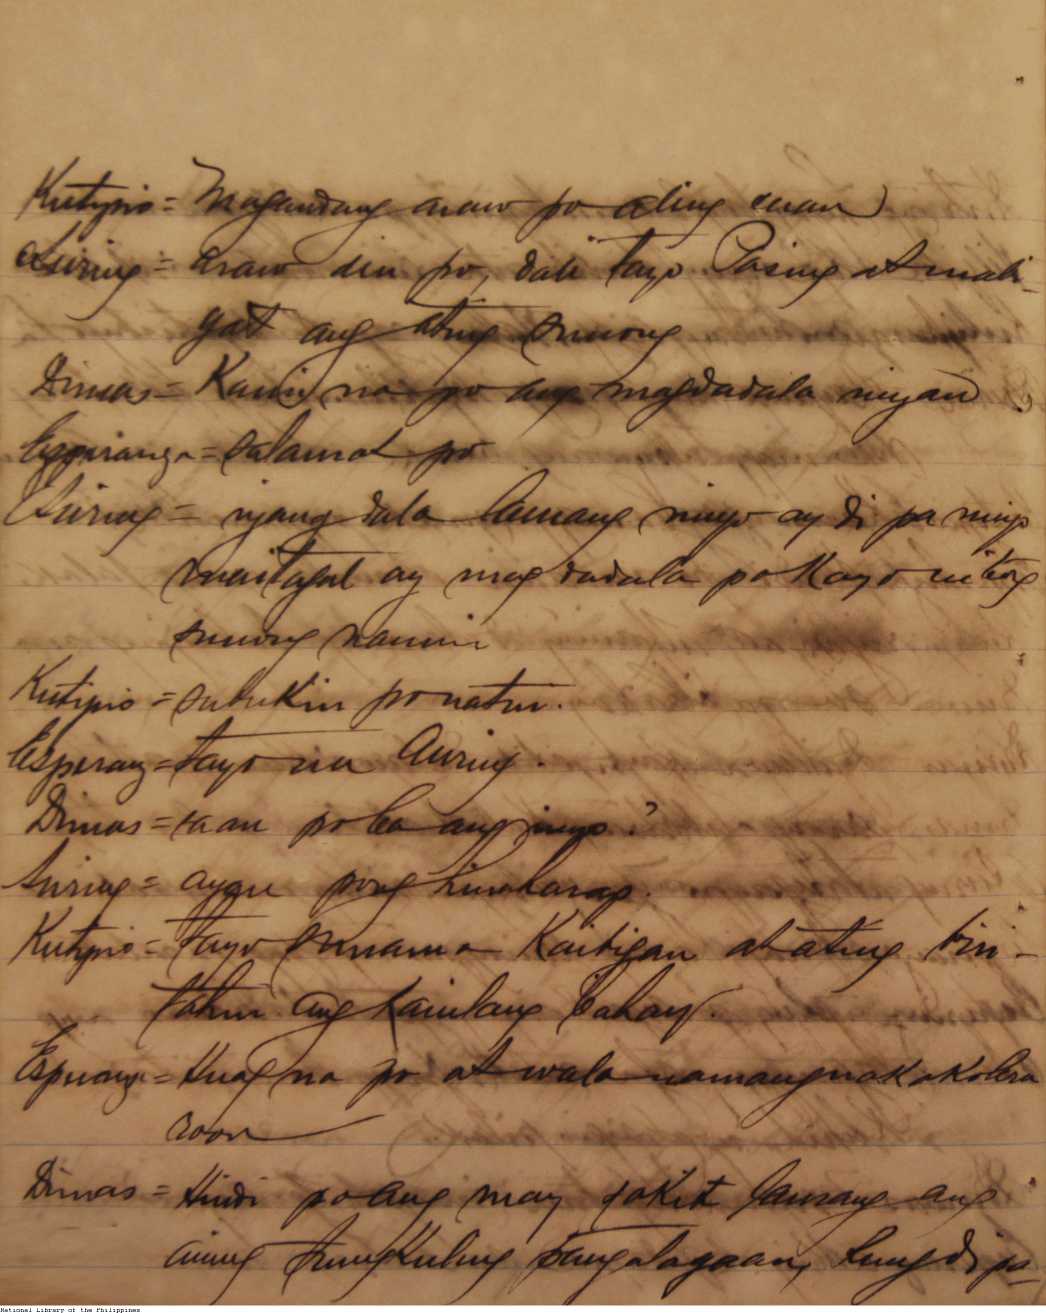 Kutypio = Magandang araw po aling
Auring = Araw din po, dali tayo Pasing at mabi-
gat ang ating sunong
Dimas = Kami na po ang magdadala niyan
Esperanza = Salamat po
Auring = iyang dala lamang ninyo ay di pa ninyo
maitagal ay mag dadala pa Kayo nitong
sunong namin
Kutipio = subukin po natin.
Esperanz = tayo na Auring.
Dimas = saan po ba ang inyo?
Auring = ayan pong hinaharap.
Kutypio = tayo sumama Kaibigan at ating bisi-
tahin ang Kanilang bahay.
Esperanza = Huag na po at wala namang nakakolera
roon
Dimas = Hindi po ang may sakit lamang ang
aming tungkuling pangalagaan, kung di pa-
National Library of the Philippines